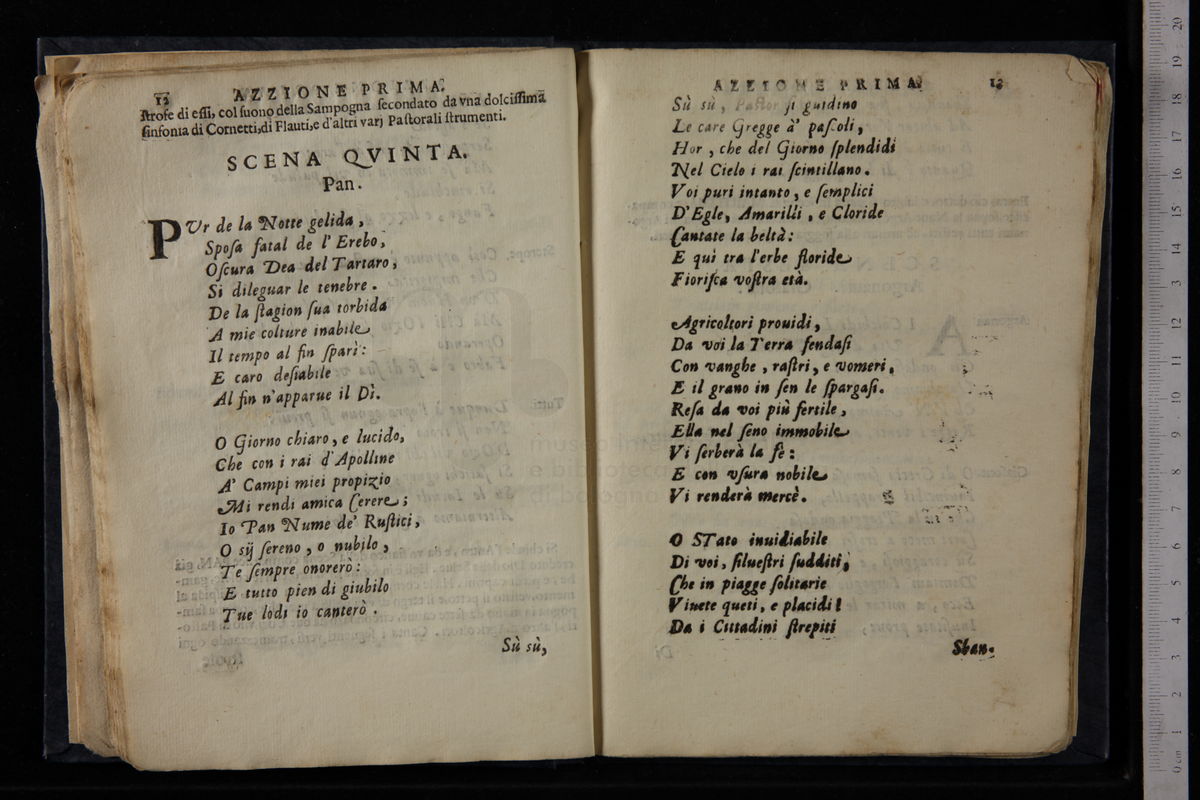 12 AZZIONE PRIMA.
ſtrofe di eſſi, col ſuono della Sampogna ſecondato da vna dolciſſima
ſinfonia di Cornetti, di Flauti, e d'altri varj Paſtorali ſtrumenti.
SCENA QVINTA.
Pan.
PVr de la Notte gelida,
Spoſa fatal de l'Erebo,
Oſcura Dea del Tartaro,
Si dileguar le tenebre.
De la ſtagion ſua torbida
A mie colture inabile
Il tempo al fin ſparì:
E caro deſiabile
Al fin n'apparue il Dì.
O Giorno chiaro, e lucido,
Che con i rai d'Apolline
A' Campi miei propizio
Mi rendi amica Cerere;
Io Pan Nume de' Ruſtici,
O ſij ſereno, o nubilo,
Te ſempre onorerò:
E tutto pien di giubilo
Tue lodi io canterò.
Sù sù,
AZZIONE PRIMA. 13
Sù sù, Paſtor ſi guidino
Le care Gregge a' paſcoli,
Hor, che del Giorno ſplendidi
Nel Cielo i rai ſcintillano.
Voi puri intanto, e ſemplici
D'Egle, Amarilli, e Cloride
Cantate la beltà:
E quì tra l'erbe floride
Fioriſca voſtra età.
Agricoltori prouidi,
Da voi la Terra fendaſi
Con vanghe, raſtri, e vomeri,
E il grano in ſen le ſpargaſi.
Reſa da voi più fertile,
Ella nel ſeno immobile
Vi ſerberà la fè:
E con vſura nobile
Vi renderà mercè.
O STato inuidiabile
Di voi, ſilueſtri ſudditi,
Che in piagge ſolitarie
Viuete queti, e placidi!
Da i Cittadini ſtrepiti
Sban-
museo in
e biblioteca
di bologna
0 cm 1 2 3 4 5 6 7 8 9 10 11 12 13 14 15 16 17 18 19 20